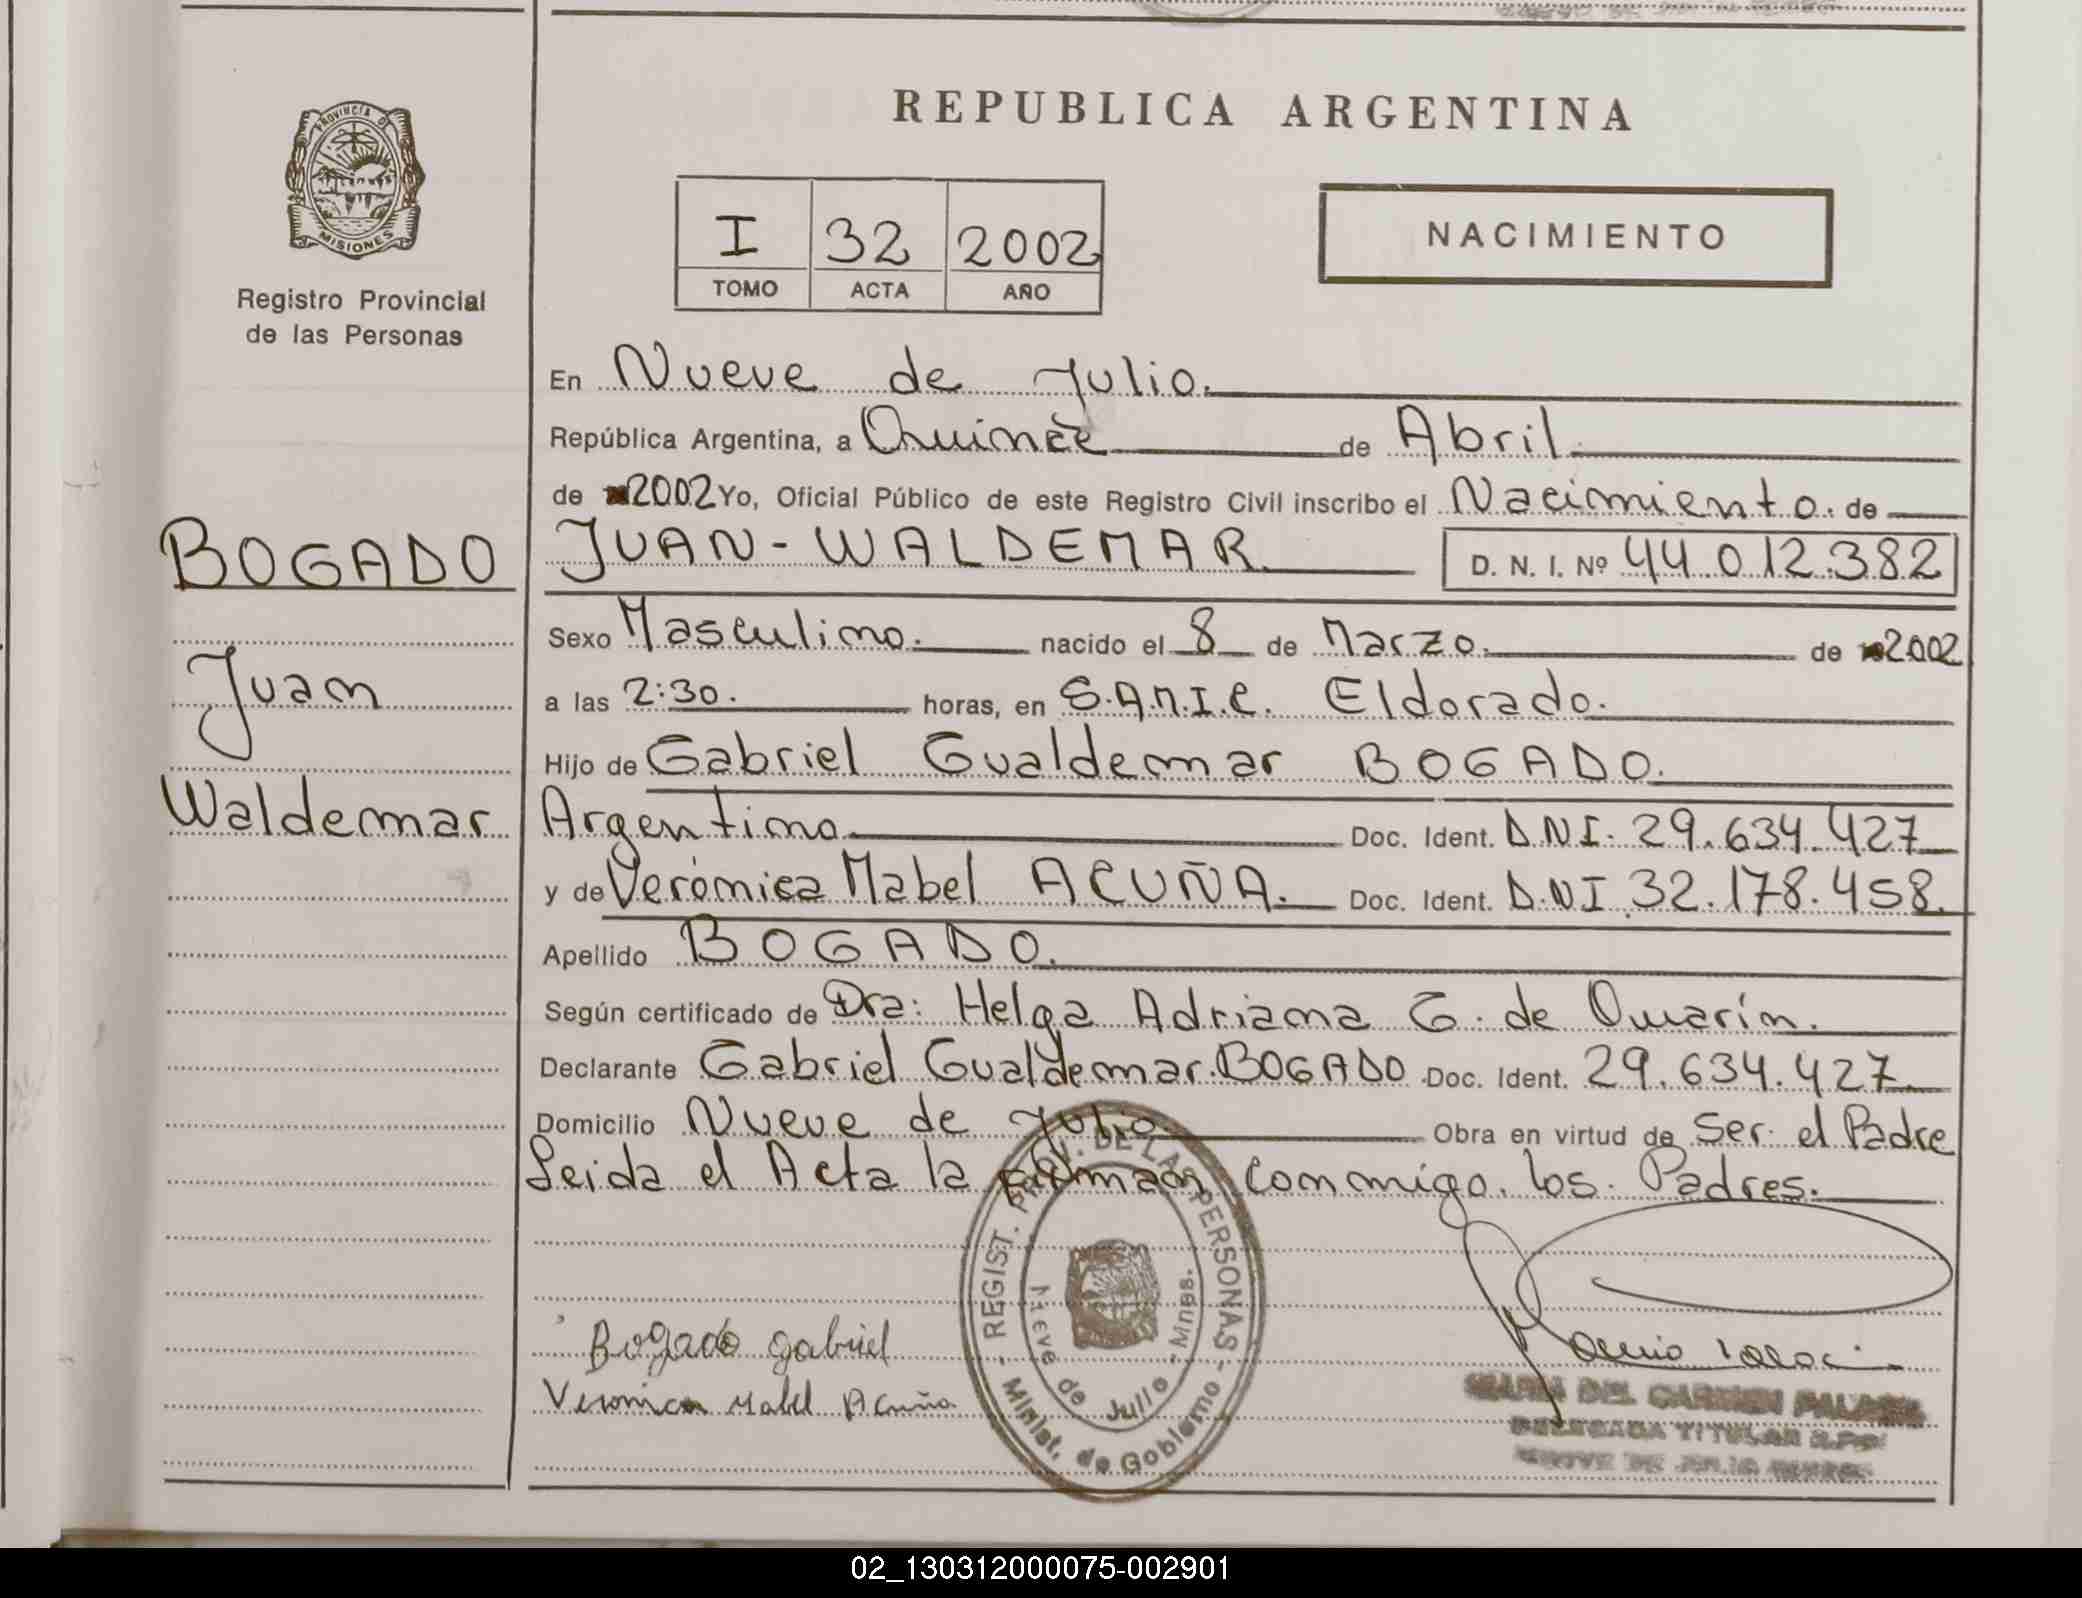 REPUBLICA ARGENTINA
PROVINCIA DE
MISIONES
Registro Provincial
de las Personas
I 32 2002
TOMO ACTA AÑO
NACIMIENTO
En Nueve de Julio.
República Argentina, a Quince de Abril.
de 2002 Yo, Oficial Público de este Registro Civil inscribo el Nacimiento. de
BOGADO
Juan
Waldemar
JUAN-WALDEMAR. D. N. I. Nº 44.012.382
Sexo Masculino. nacido el 8 de Marzo. de 2002
a las 2:30. horas, en S.A.M.I.C. Eldorado.
Hijo de Gabriel Gualdemar BOGADO.
Argentino Doc. Ident. D.N.I. 29.634.427
y de Verónica Mabel ACUÑA. Doc. Ident. D.N.I. 32.178.458.
Apellido BOGADO.
Según certificado de Dra: Helga Adriana G. de
Declarante Gabriel Gualdemar BOGADO Doc. Ident. 29.634.427
Domicilio Nueve de Julio. Obra en virtud de Ser el Padre
Leida el Acta la firman conmigo los Padres.
REGIST. PROV. DE LAS PERSONAS
Minist. de Gobierno
Nueve de Julio - Mnes.
Bogado gabriel
Veronica Mabel Acuña
MARIA DEL CARMEN
DELEGADA TITULAR R.P.P.
NUEVE DE JULIO
02_130312000075-002901